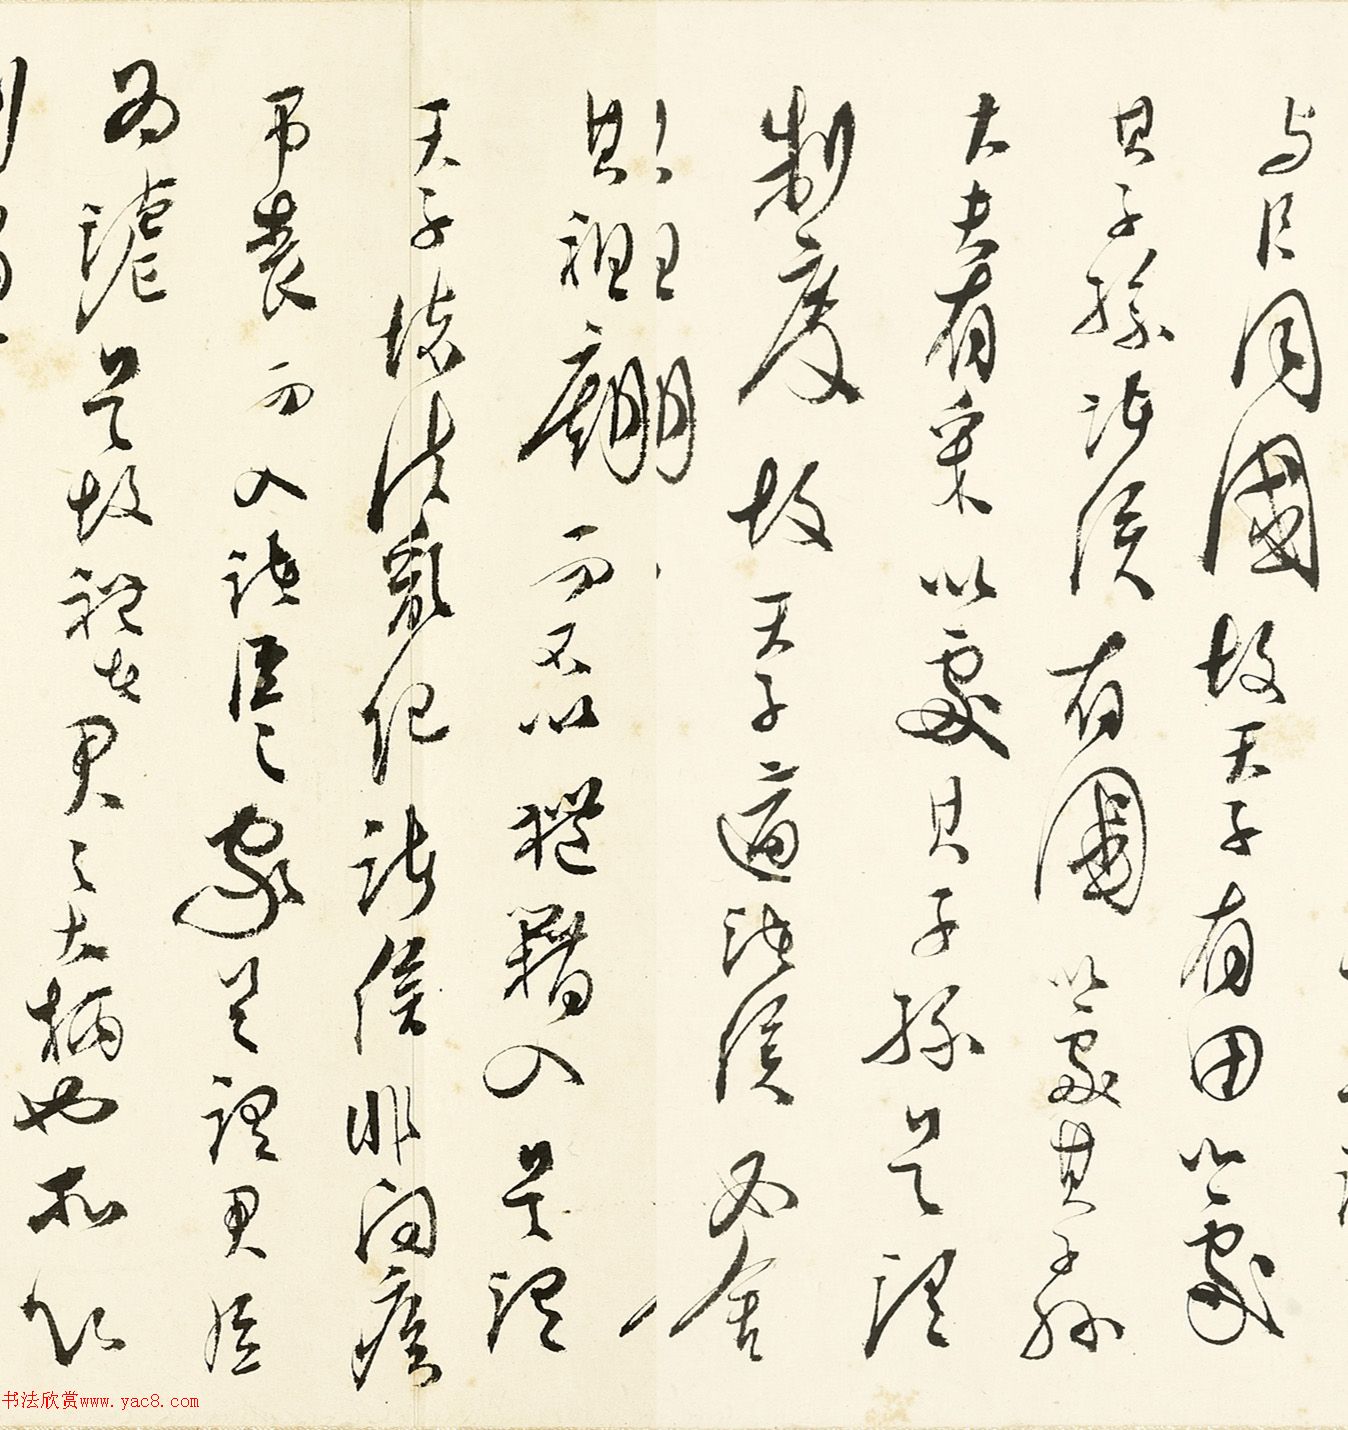 与臣同國故天子有田以處
其子孫諸侯有國以處其子孫
大夫有采以處其子孫是謂
制度故天子適諸侯必舍
其祖廟而不以禮籍入是謂
天子壞法亂紀諸侯非問疾
吊喪而入諸臣之家是謂君臣
為謔是故禮者君之大柄也所以
书法欣赏www.yac8.com